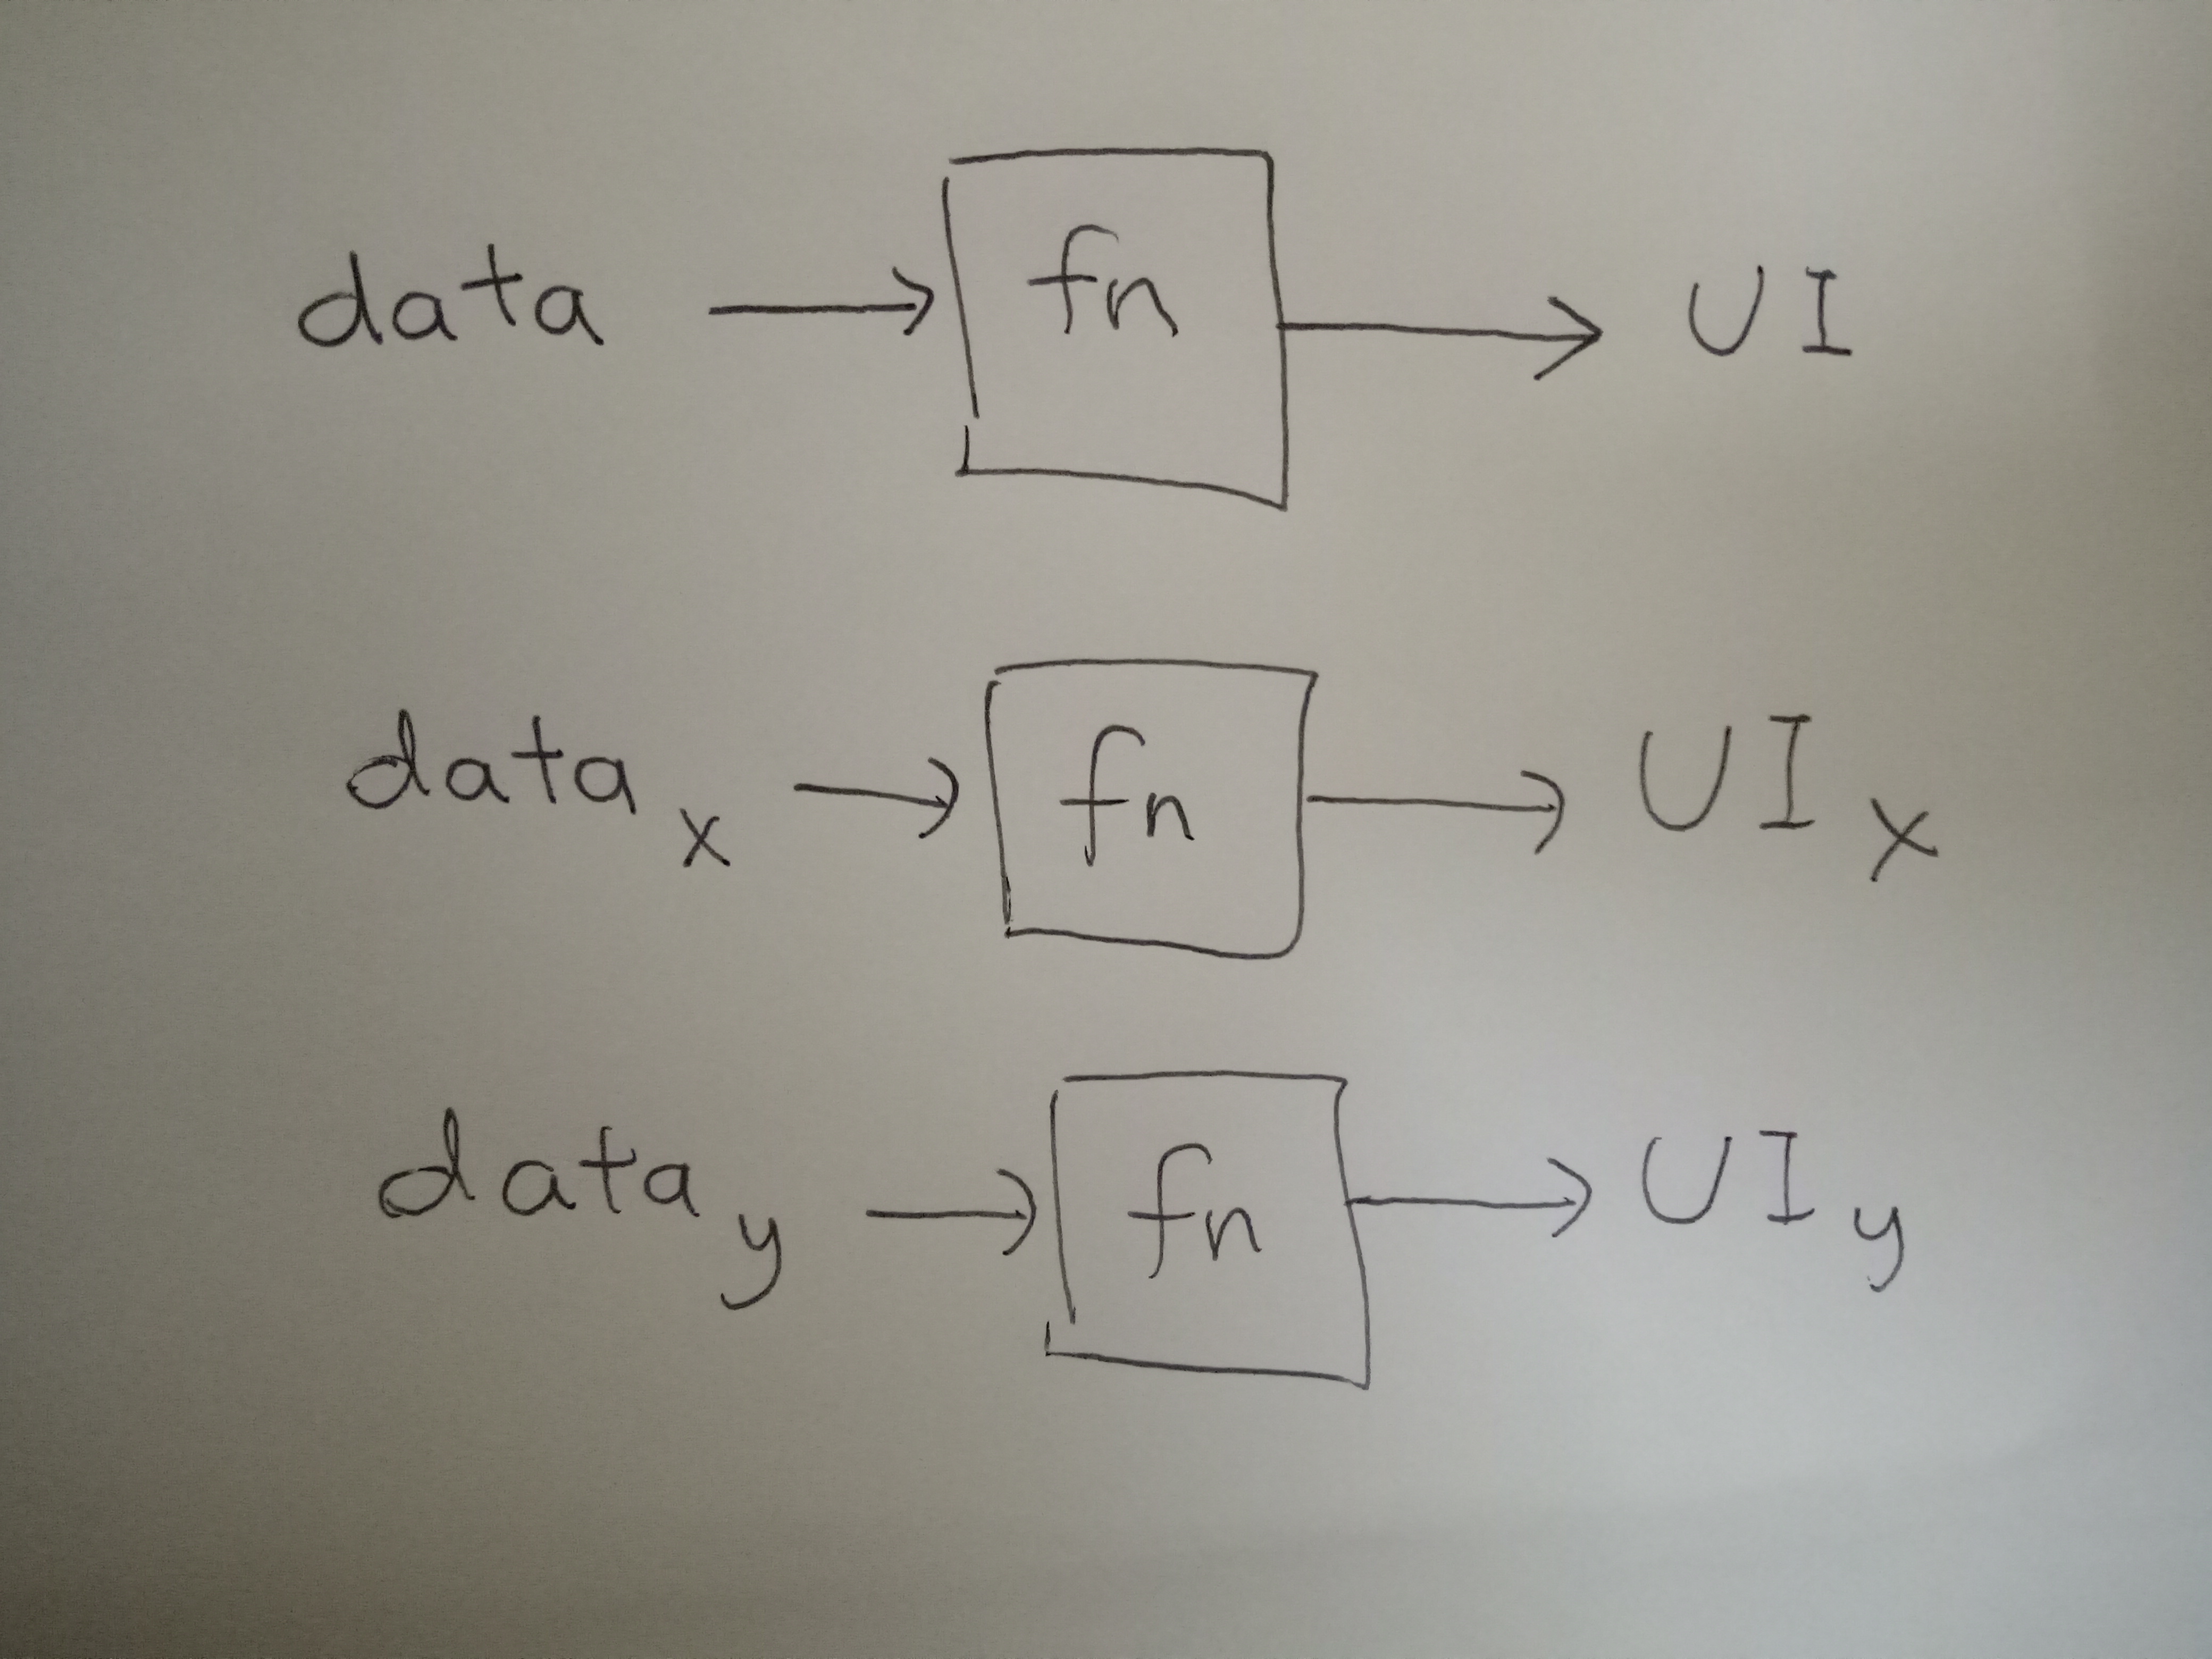 data → fn → UI
data x → fn → UI x
data y → fn → UI y